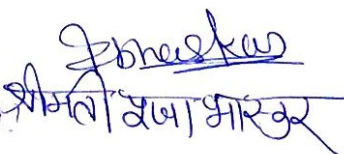 Bhaskar
श्रीमती पूजा भास्कर